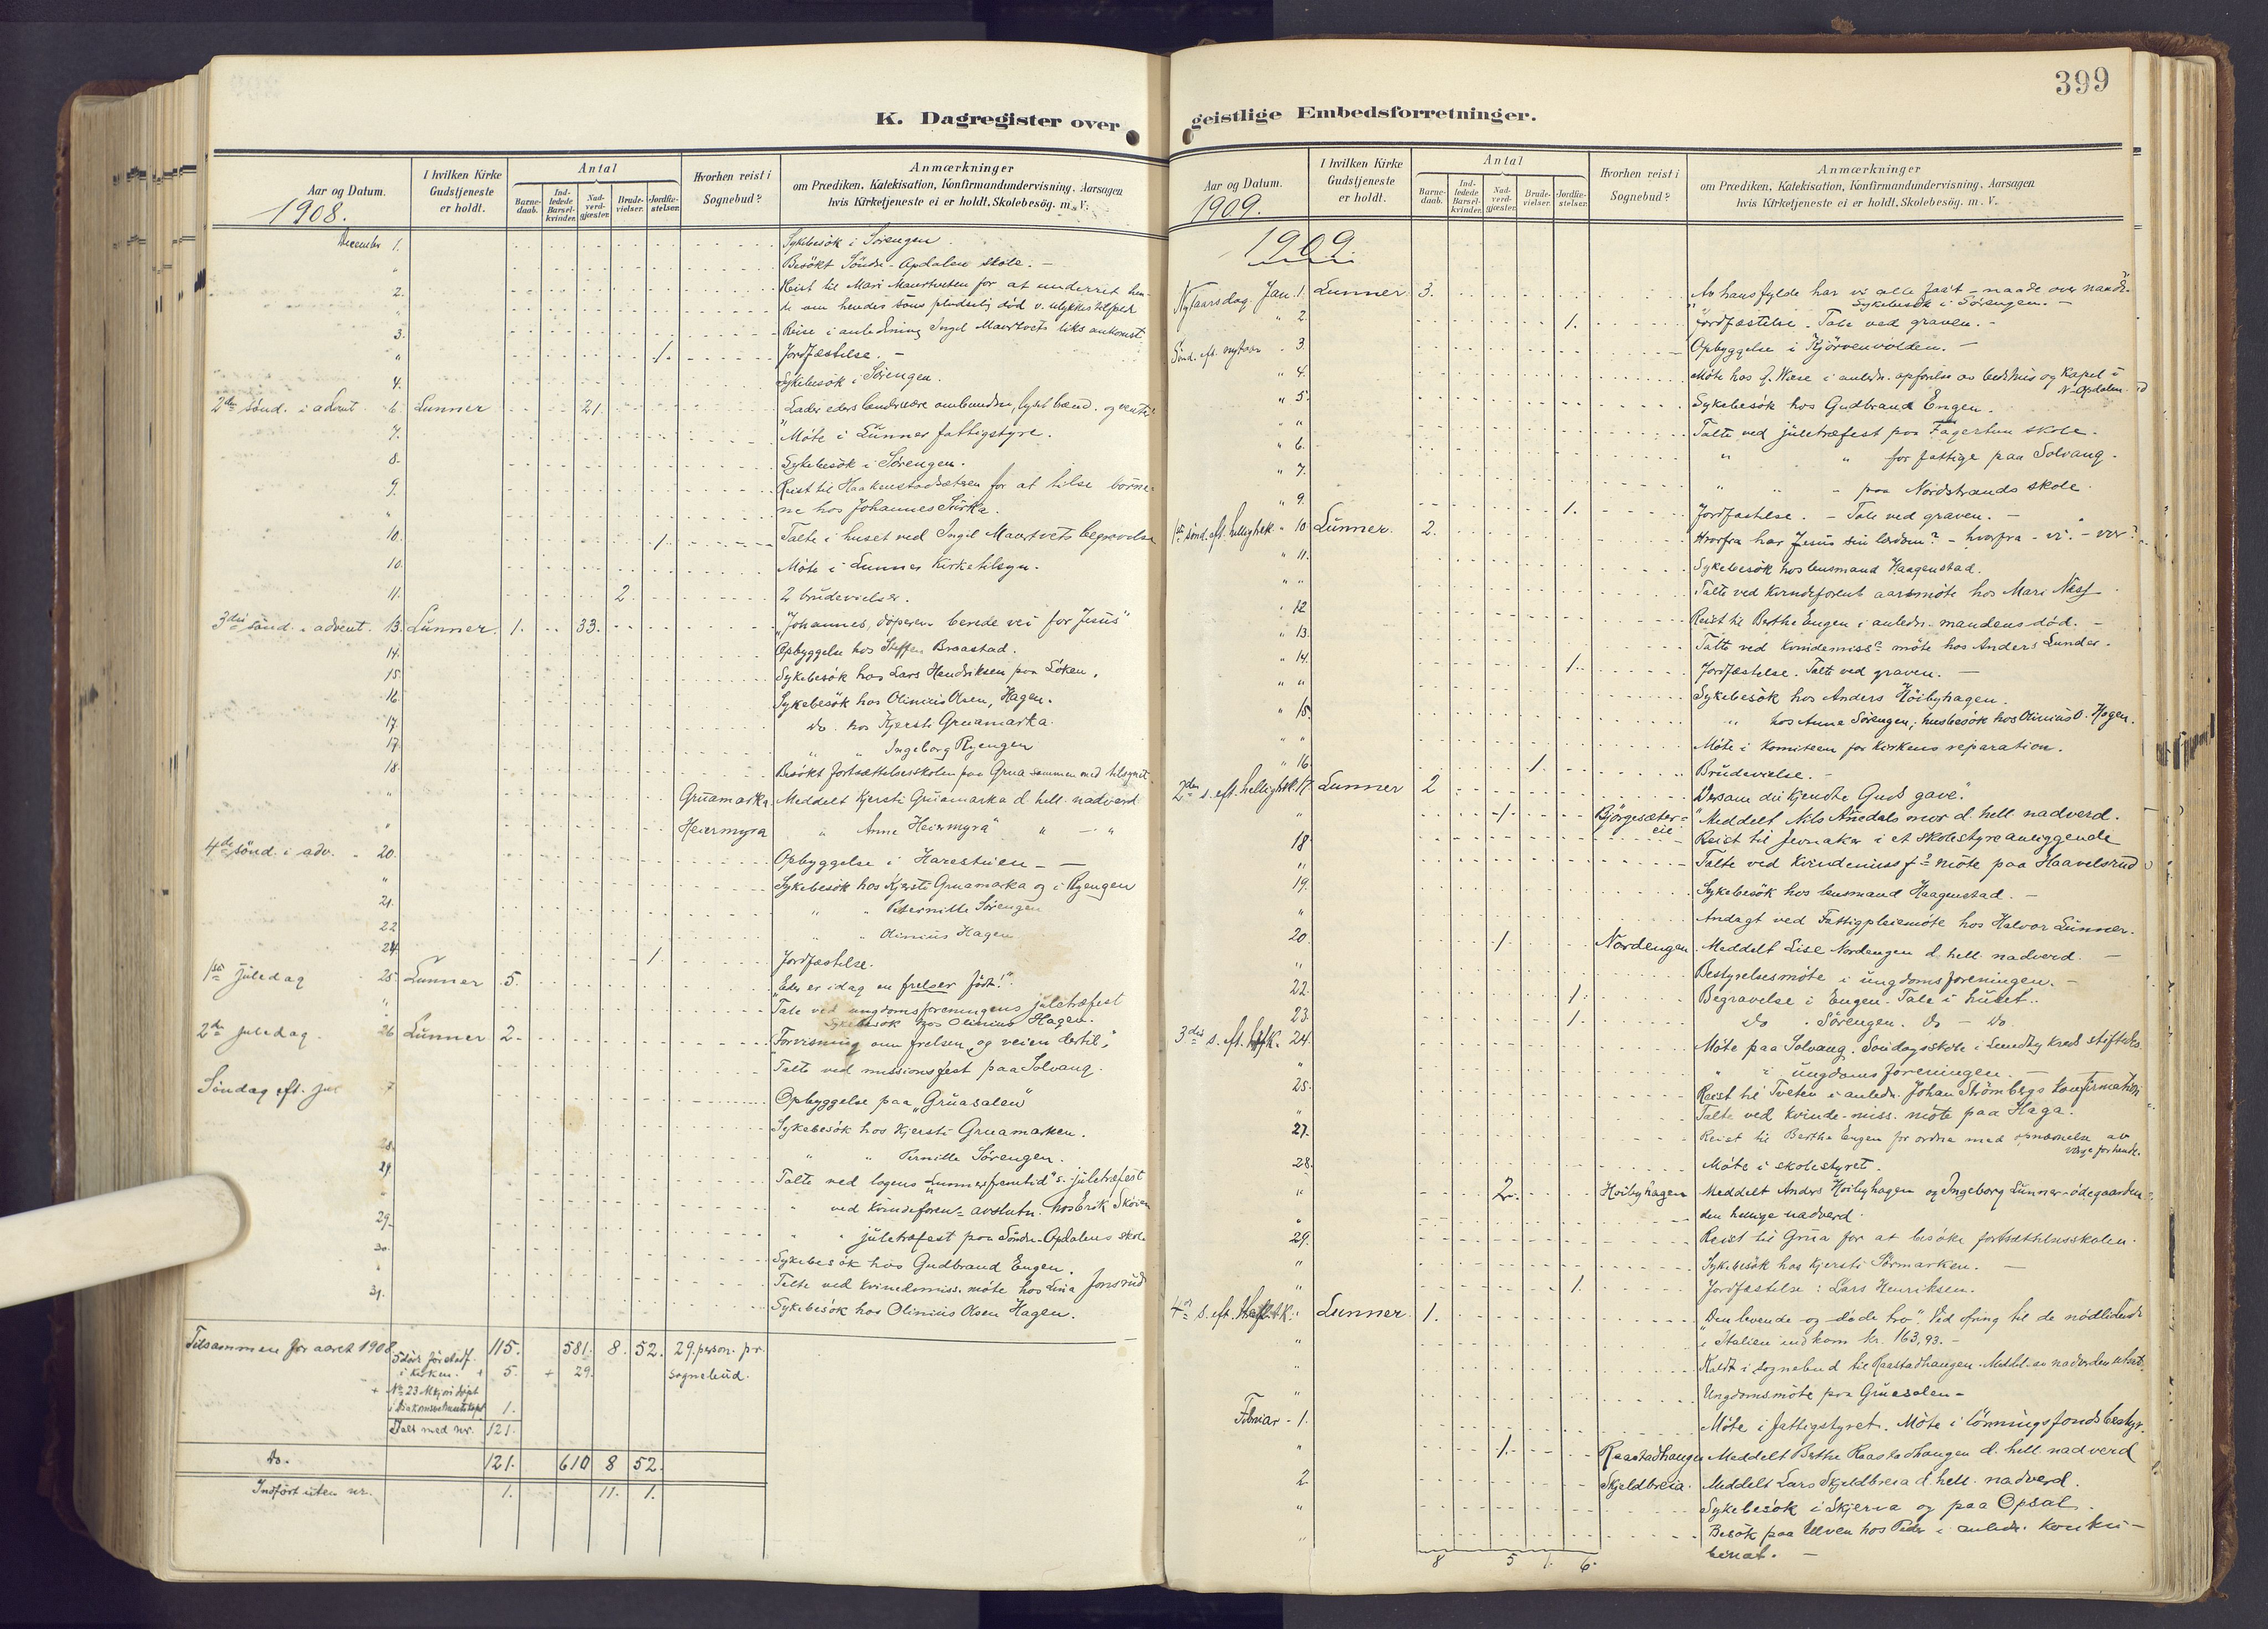 K. Dagregister over
Aar og Datum.
1908.
I hvilken Kirke Gudstjeneste er holdt.
Antal
Barne-daab.
Ind-ledede Barsel-kvinder.
Nad-verd-gjæster.
Brude-vielser.
Jordfæ-stelser.
Hvorhen reist i Sognebud?
Anmærkninger
om Prædiken, Katekisation, Konfirmandundervisning, Aarsagen
hvis Kirketjeneste ei er holdt, Skolebesög. m. V.
December 1. Sykebesök i Sörengen
" Besökt Söndre-Opdalen skole. -
2. Reist til Mari Maurtveten for at underret hen-
de om hendes söns pludselig död v. ulykkestilfælde
3. Reise i anledning Ingel Maurtvets liks ankomst
" 1. Jordfæstelse. -
4. Sykebesök i Sörengen.
2den sönd. i advent 6. Lunner 21. Lader eders lænder være ombundne, lyset brænd. og vente
7. Möte i Lunner fattigstyre.
8. Sykebesök i Sörengen.
9. Reist til Haakenstadsætren for at tilse börne-
" ne hos Johannes
10. 1. Talte i huset ved Ingel Maurtvets begravelse
10. Möte i Lunner Kirketilsyn.
11. 2 2 brudevielser.
3die sönd. i advent. 13. Lunner. 1. 33. "Johannes, döperen berede vei for Jesus"
14. Opbyggelse hos Steffen Braastad.
15. Sykebesök hos Lars Hendriksen paa Löken.
16. Sykebesök hos Olinius Olsen, Hagen.
17. Do. hos Kjersti Gruamarka.
17. " " Ingeborg Ryengen
18. Besökt fortsættelsesskolen paa Grua sammen med tilsynet
" Gruamarka. Meddelt Kjersti Gruamarka d. hell. nadverd
" Heiermyra " Anne Heiermyra " - "
4de sönd. i adv. - 20. Opbyggelse i Harestuen - -
" Sykebesök hos Kjersti Gruamarka og i Ryengen
21. " " Pernille Sörengen
22 " " Olinius Hagen
24. 1. Jordfæstelse.
1ste Juledag 25. Lunner 5. "Eder er idag en frelser födt!"
" Tale ved ungdomsforeningens juletræfest
Sykebesök hos Olinius Hagen.
2den juledag. 26 Lunner 2. Forvisning om frelsen "og veien dertil",
Talte ved missionsfest paa Solvang.
Söndag eft. jul 7 Opbyggelse paa "Gruasalen"
Sykebesök hos Kjersti Gruamarken.
28. " " Pernille Sörengen.
29 Talte ved logens "Lunnersfremtid"s juletræfest
" " ved Kvindeforen. avslutn. hos Erik Skoien
29. " " juletræfest paa Söndre-Opdalens skole
30. Sykebesök hos Gudbrand Engen.
" Talte ved kvindemiss. möte hos Lina Jonsrud
31. Sykebesök hos Olinius Olsen Hagen.
Tilsammen for aaret 1908 115. 581. 8. 52. 29. person. pr.
i kirken. + 5. + 29. sognebud.
+ No 23 1.
Ialt med nr. 121.
Do. 121. 610 8 52.
Indfört uten nr. 1. 11. 1.
399
geistlige Embedsforretninger.
Aar og Datum.
1909.
I hvilken Kirke Gudstjeneste er holdt.
Antal
Barne-daab.
Ind-ledede Barsel-kvinder.
Nad-verd-gjæster.
Brude-vielser.
Jordfæ-stelser.
Hvorhen reist i Sognebud?
Anmærkninger
om Prædiken, Katekisation, Konfirmandundervisning, Aarsagen
hvis Kirketjeneste ei er holdt, Skolebesög. m. V.
1909.
Nytaarsdag Jan. 1. Lunner. 3. "Av hans fylde har vi alle faat - naade over naade.
Sykebesök i Sörengen. -
" 2. 1. Jordfæstelse. Tale ved graven. -
Sönd. eft. nytaar " 3. Opbyggelse i Kjörvenvolden. -
" 4. Möte hos J. Wæse i anledn. opförelse av bedehus og kapel i
N-Opdalen
" 5. Sykebesök hos Gudbrand Engen.
" " Talte ved juletræfest paa Fagertun skole.
" 6. " " for fattige paa Solvang.
" 7. " " - paa Nordstrands skole.
" 9. 1. Jordfæstelse. - Tale ved graven. -
1ste sönd. eft. helligtrek. " 10. Lunner. 2. Hvorfra har Jesus sin lærdom? - hvorfra - vi - vor?
" 11. Sykebesök hos lensmand Haagenstad.
" " Talte ved Kvindeforent aarsmöte hos Mari Næss
" 12. Reist til Berthe Engen i anledn. mandens död. -
" 13. Talte ved Kvindemiss. möte hos Anders Lunder.
" 14. 1. Jordfæstelse. Talte ved graven. -
" " Sykebesök hos Anders Höibyhagen.
" 15. " hos Anna Sörengen; husbesök hos Olinius O. Hagen.
" " Möte i Komiteen for kirkens reparation.
" 16. 1. Brudevielse. -
2den s. eft. helligtrek. 17. Lunner 2 "Dersom du kjendte Guds gave".
" 1. Björgesæter-eie Meddelt Nils Anedals mor d. hell. nadverd.
18. Reist til Jevnaker i et skolestyreanliggende
" Talte ved Kvindemissf. möte paa Haavelsrud
19. Sykebesök hos lensmand Haagenstad. -
" Andagt ved Fattigpleiemöte hos Halvor Lunner.
20. 1. Nordengen. Meddelt Lise Nordengen d. hell. nadverd. -
" Bestyrelsesmöte i ungdomsforeningen. -
22. 1. Begravelse i Engen. Tale i huset.
23. 1. Do. Sörengen. Do - Do.
3die s. eft. 24. Möte paa Solvang. Söndagsskole i Lundby kreds stiftedes.
" " i ungdomsforeningen. -
25. Reist til Tveten i anledn. Johan Strömbergs konfirmation
" Talte ved Kvinde-miss. möte paa Haga.
27. Reist til Berthe Engen for ordne med opnævnelse av
værge for hende.
28. Möte i skolestyret.
" 2. Höibyhagen Meddelt Anders Höibyhagen og Ingeborg Lunner-ödegaarden
" den hellige nadverd.
29. Reist til Grua for at besöke fortsættelsesskolen.
" Sykebesök hos Kjersti Sörmarken. -
" 1. Jordfæstelse: Lars Henriksen.
4de s. eft. Lunner. 1. "Den levende og döde tro". Ved ofring til de nödlidende
" i Italien indkom kr. 163,93. -
" Kaldt i sognebud til Raastadhaugen. Meddel. av nadverden utsat.
" Ungdomsmöte paa Gruasalen -
Februar - 1. Möte i fattigstyret. Möte i lönningsfondsbestyr.
" 1. Raastadhaugen Meddelt Berthe Raastadhaugen d. hell. nadverd
2. Skjeldbreia. Meddelt Lars Skjeldbreia d. hell. nadverd.
" Sykebesök i Skjerva og paa Opsal.
" Besök paa Ulven hos Peder i anledn. konku-
binat. -
8 5 1. 6.